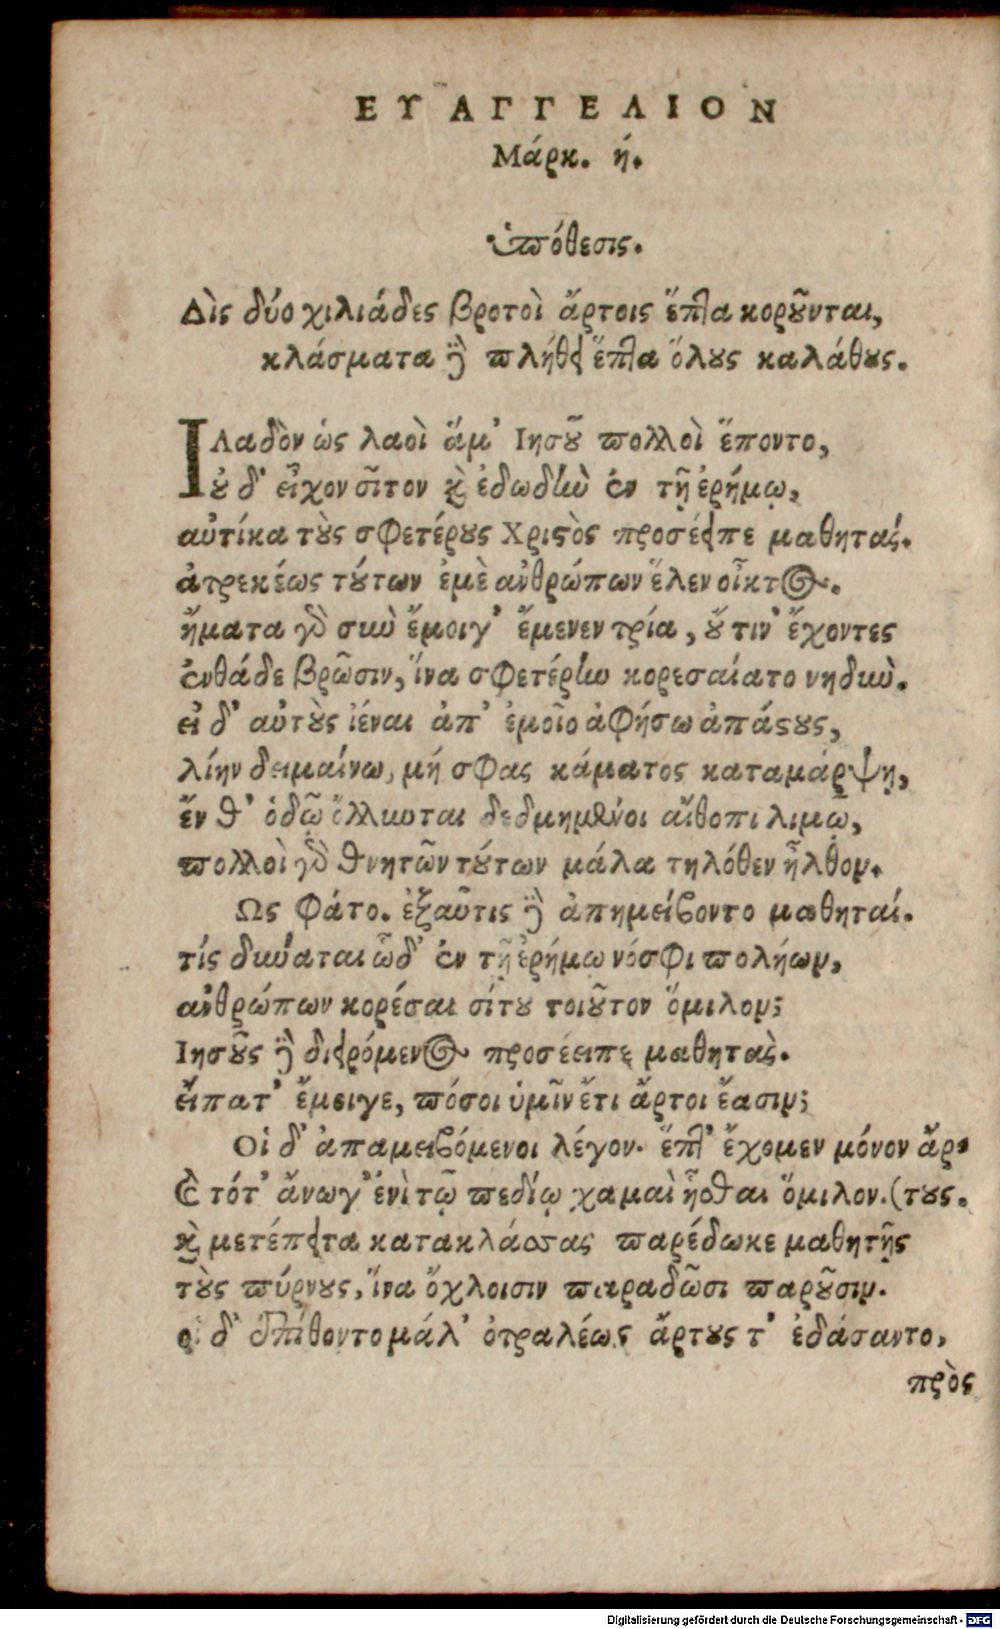 ΕΥΑΓΓΕΛΙΟΝ
Μάρκ. ή.
ὑπόθεσις.
Δὶς δύο χιλιάδες βροτοὶ ἄρτοις ἕπτα κοροῦνται,
κλάσματα δὲ πλήθει ἕπτα ὅλους καλάθους.
ΙΛαδὸν ὡς λαοὶ ἅμ' Ιησοῦ πολλοὶ ἕποντο,
οὐ δ' εἶχον σῖτον καὶ ἐδωδὴν ἐν τῇ ἐρήμῳ,
αὐτίκα τοὺς σφετέρους Χριστὸς προσέειπε μαθητάς.
ἀτρεκέως τούτων ἐμὲ ἀνθρώπων ἕλεν οἶκτος.
ἤματα γὰρ σὺν ἔμοιγ' ἔμενεν τρία, οὔ τιν' ἔχοντες
ἐνθάδε βρῶσιν, ἵνα σφετέρην κορεσαίατο νηδὺν.
εἰ δ' αὐτοὺς ἰέναι ἀπ' ἐμοῖο ἀφήσω ἀπάστους,
λίην δειμαίνω, μή σφας κάματος καταμάρψῃ,
ἔν θ' ὁδῷ ὄλλυνται δεδμημένοι αἴθοπι λιμῷ,
πολλοὶ γὰρ θνητῶν τούτων μάλα τηλόθεν ἦλθον.
Ως φάτο. ἐξαῦτις δὲ ἀπημείβοντο μαθηταί.
τίς δύναται ὧδ' ἐν τῇ ἐρήμῳ νόσφι πολήων,
ἀνθρώπων κορέσαι σίτου τοιοῦτον ὅμιλον;
Ιησοῦς δὲ διειρόμενος προσέειπε μαθητὰς.
εἴπατ' ἔμοιγε, πόσοι ὑμῖν ἔτι ἄρτοι ἔασιν;
Οἱ δ' ἀπαμειβόμενοι λέγον. ἕπτ' ἔχομεν μόνον ἄρ-
Ἐ τότ' ἄνωγ' ἐνὶ τῷ πεδίῳ χαμαὶ ἧσθαι ὅμιλον. (τους.
καὶ μετέπειτα κατακλάσσας παρέδωκε μαθητῇς
τοὺς πύρνους, ἵνα ὄχλοισιν παραδῶσι παροῦσιν.
οἱ δ' ἐπίθοντο μάλ' ὀτραλέως ἄρτους τ' ἐδάσαντο,
πρὸς
Digitalisierung gefördert durch die Deutsche Forschungsgemeinschaft - DFG